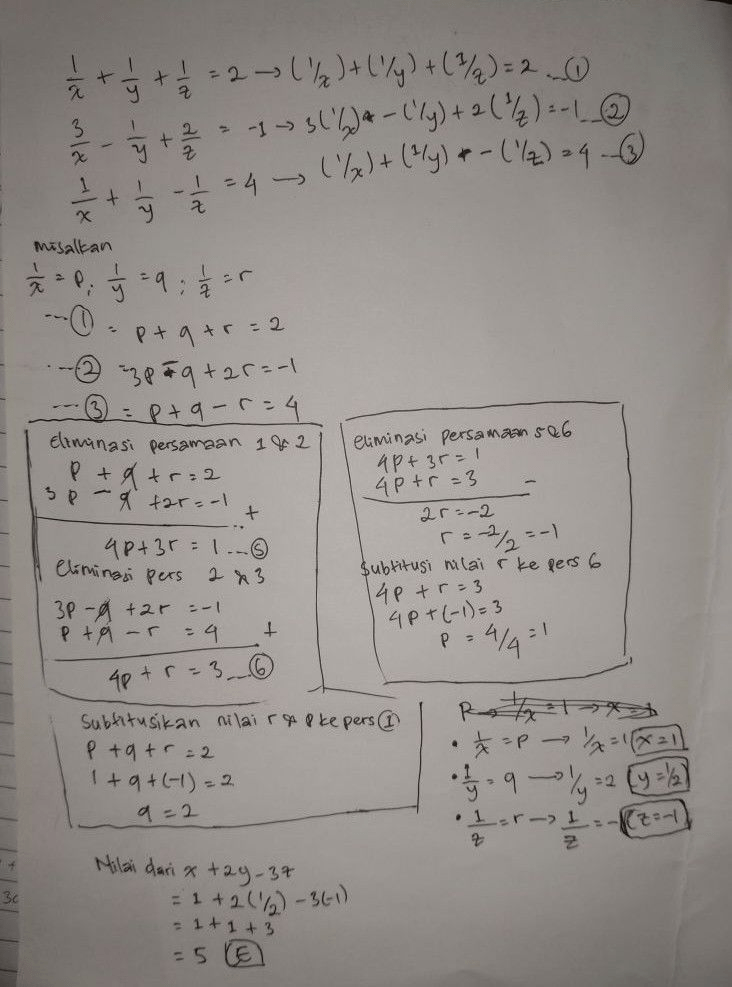 1/x + 1/y + 1/z = 2 → (1/x) + (1/y) + (1/z) = 2 ... ①
3/x - 1/y + 2/z = -1 → 3(1/x) - (1/y) + 2(1/z) = -1 ... ②
1/x + 1/y - 1/z = 4 → (1/x) + (1/y) - (1/z) = 4 ... ③
misalkan
1/x = p; 1/y = q; 1/z = r
... ① = p + q + r = 2
... ② = 3p - q + 2r = -1
... ③ = p + q - r = 4
Eliminasi persamaan 1 & 2
p + q + r = 2
3p - q + 2r = -1
+
4p + 3r = 1 ... ⑤
Eliminasi pers 2 & 3
3p - q + 2r = -1
p + q - r = 4 +
4p + r = 3 ... ⑥
eliminasi persamaan 5 & 6
4p + 3r = 1
4p + r = 3 -
2r = -2
r = -2/2 = -1
Subtitusi nilai r ke pers 6
4p + r = 3
4p + (-1) = 3
p = 4/4 = 1
Subtitusikan nilai r & p ke pers ①
p + q + r = 2
1 + q + (-1) = 2
q = 2
• 1/x = p → 1/x = 1 x = 1
• 1/y = q → 1/y = 2 y = 1/2
• 1/z = r → 1/z = - z = -1
Nilai dari x + 2y - 3z
= 1 + 2(1/2) - 3(-1)
= 1 + 1 + 3
= 5 E